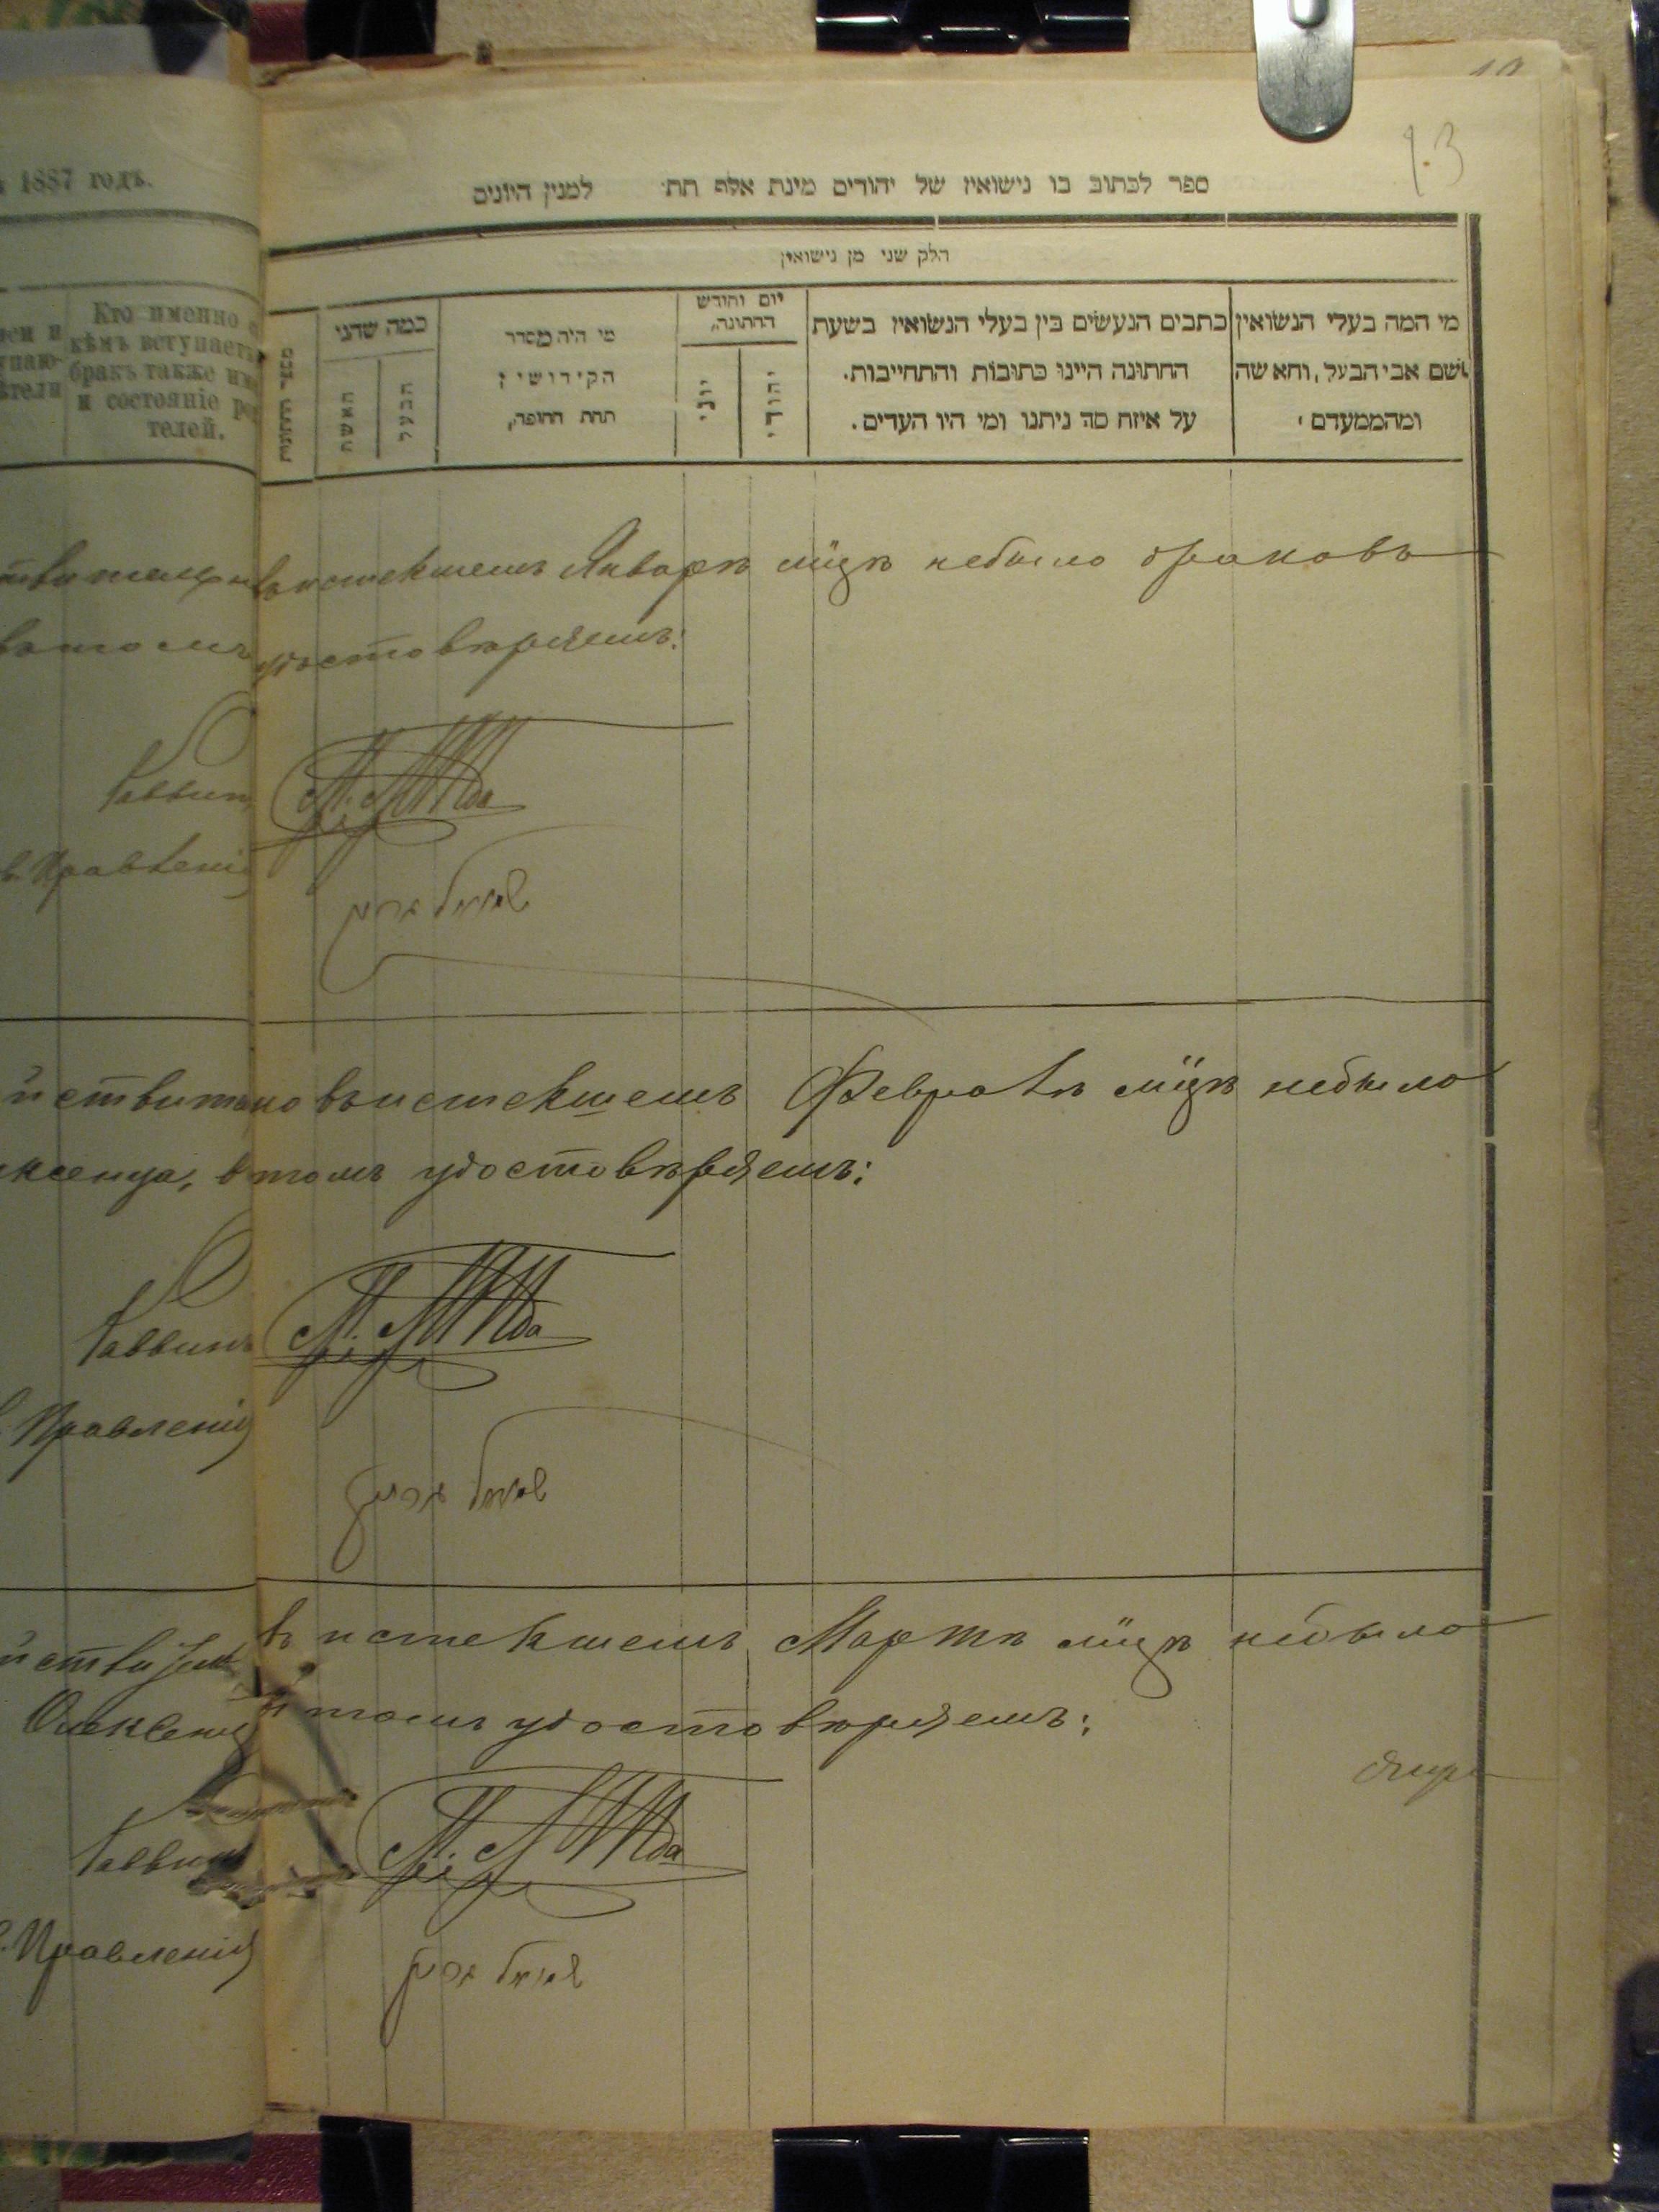 1887 годъ.
Кто именно
кѣмъ вступаетъ
бракъ также
и состояніе
телей.
13
ספר לכתוב בו נישואין של יהודים מינת אלף תת׳ למנין היונים
חלק שני מן נישואין
מי המה בעלי הנשואין
ושם אבי הבעל, והאשה
ומהממעדם
כתבים הנעשים בין בעלי הנשואין בשעת
החתונה היינו כתובות והתחייבות.
על איזה סה ניתנו ומי היו העדים.
יום וחודש
החתונה,
יהודי
יוני
מי היה מסדר
הקידושין
תחת החופה,
כמה שהני
הבעל
האשה
въ истекшемъ Январѣ мцѣ небыло браковъ
удостовѣряемъ:
Раввинъ
Правленія
но въ истекшемъ Февралѣ мцѣ небыло
втомъ удостовѣряемъ:
Раввинъ
Правленія
въ истекшемъ Мартѣ мцѣ небыло
втомъ удостовѣряемъ:
Раввинъ
Правленія